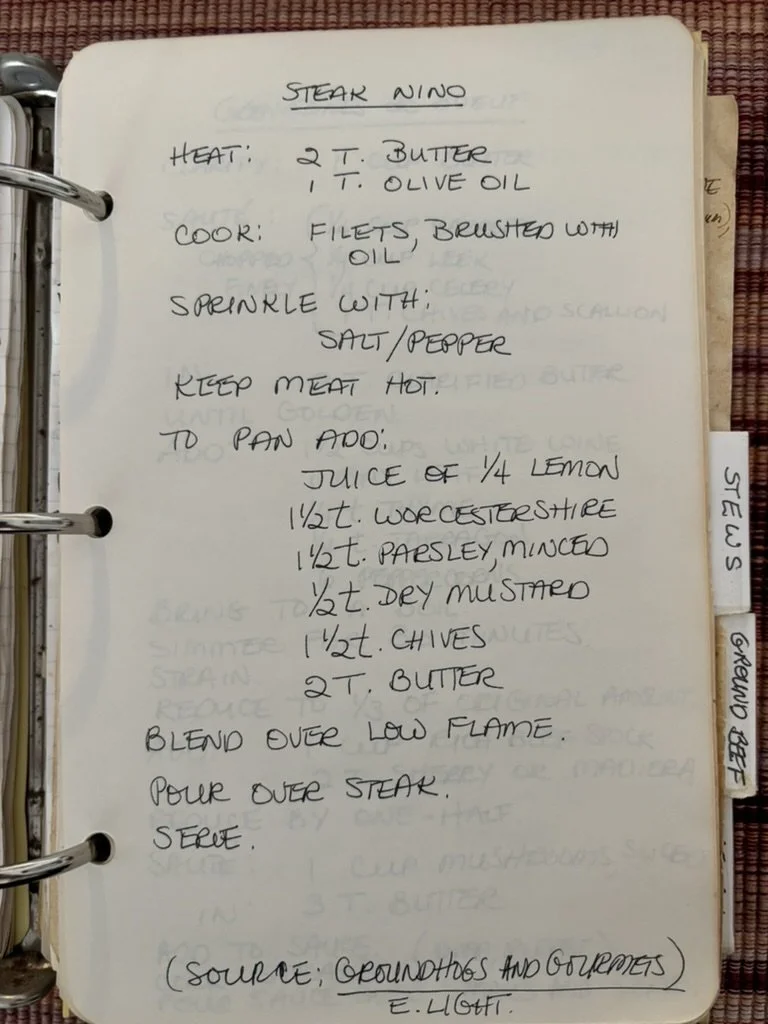 STEAK NINO
HEAT: 2 T. BUTTER
1 T. OLIVE OIL
COOK: FILETS, BRUSHED WITH
OIL
SPRINKLE WITH:
SALT/PEPPER
KEEP MEAT HOT.
TO PAN ADD:
JUICE OF 1/4 LEMON
1 1/2 t. WORCESTERSHIRE
1 1/2 t. PARSLEY, MINCED
1/2 t. DRY MUSTARD
1 1/2 t. CHIVES
2 T. BUTTER
BLEND OVER LOW FLAME.
POUR OVER STEAK.
SERVE.
(SOURCE: GROUNDHOGS AND GOURMETS)
E. LIGHT.
STEWS
GROUND BEEF